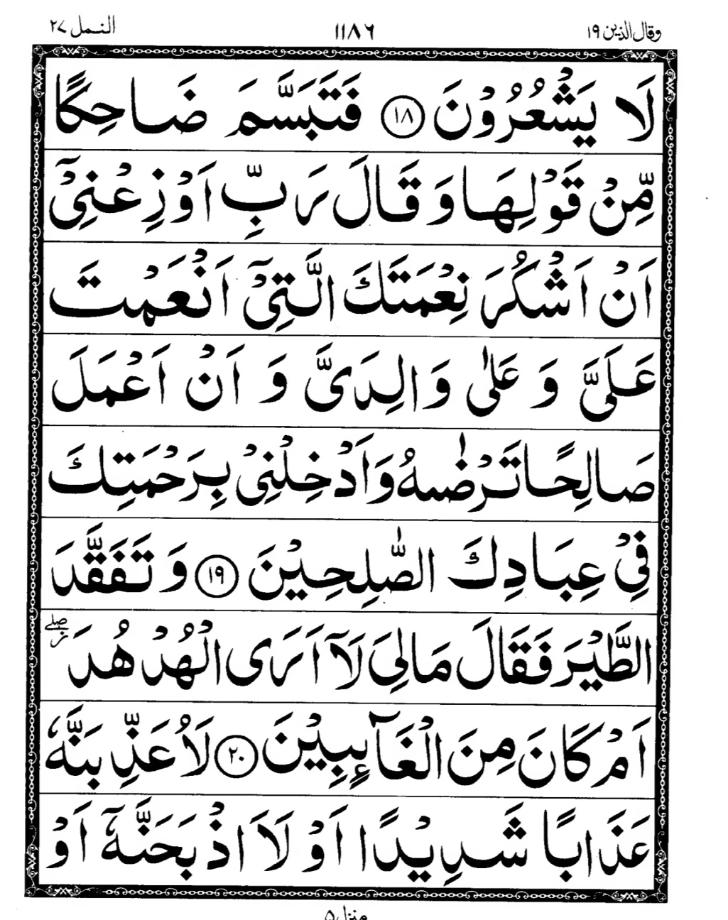 وقال الذين ١٩ ١١٨٦ النمل ٢٧
لَا يَشْعُرُوْنَ ﴿١٨﴾ فَتَبَسَّمَ ضَاحِكًا
مِّنْ قَوْلِهَا وَ قَالَ رَبِّ اَوْزِعْنِیْۤ
اَنْ اَشْكُرَ نِعْمَتَكَ الَّتِیْۤ اَنْعَمْتَ
عَلَیَّ وَ عَلٰی وَالِدَیَّ وَ اَنْ اَعْمَلَ
صَالِحًا تَرْضٰىهُ وَاَدْخِلْنِیْ بِرَحْمَتِكَ
فِیْ عِبَادِكَ الصّٰلِحِيْنَ ﴿١٩﴾ وَ تَفَقَّدَ
الطَّيْرَ فَقَالَ مَالِیَ لَاۤ اَرَی الْهُدْهُدَ ۖز
اَمْ كَانَ مِنَ الْغَآئِبِيْنَ ﴿٢٠﴾ لَاُعَذِّبَنَّهٗ
عَذَابًا شَدِيْدًا اَوْ لَاَاذْبَحَنَّهٗۤ اَوْ
منزل ٥